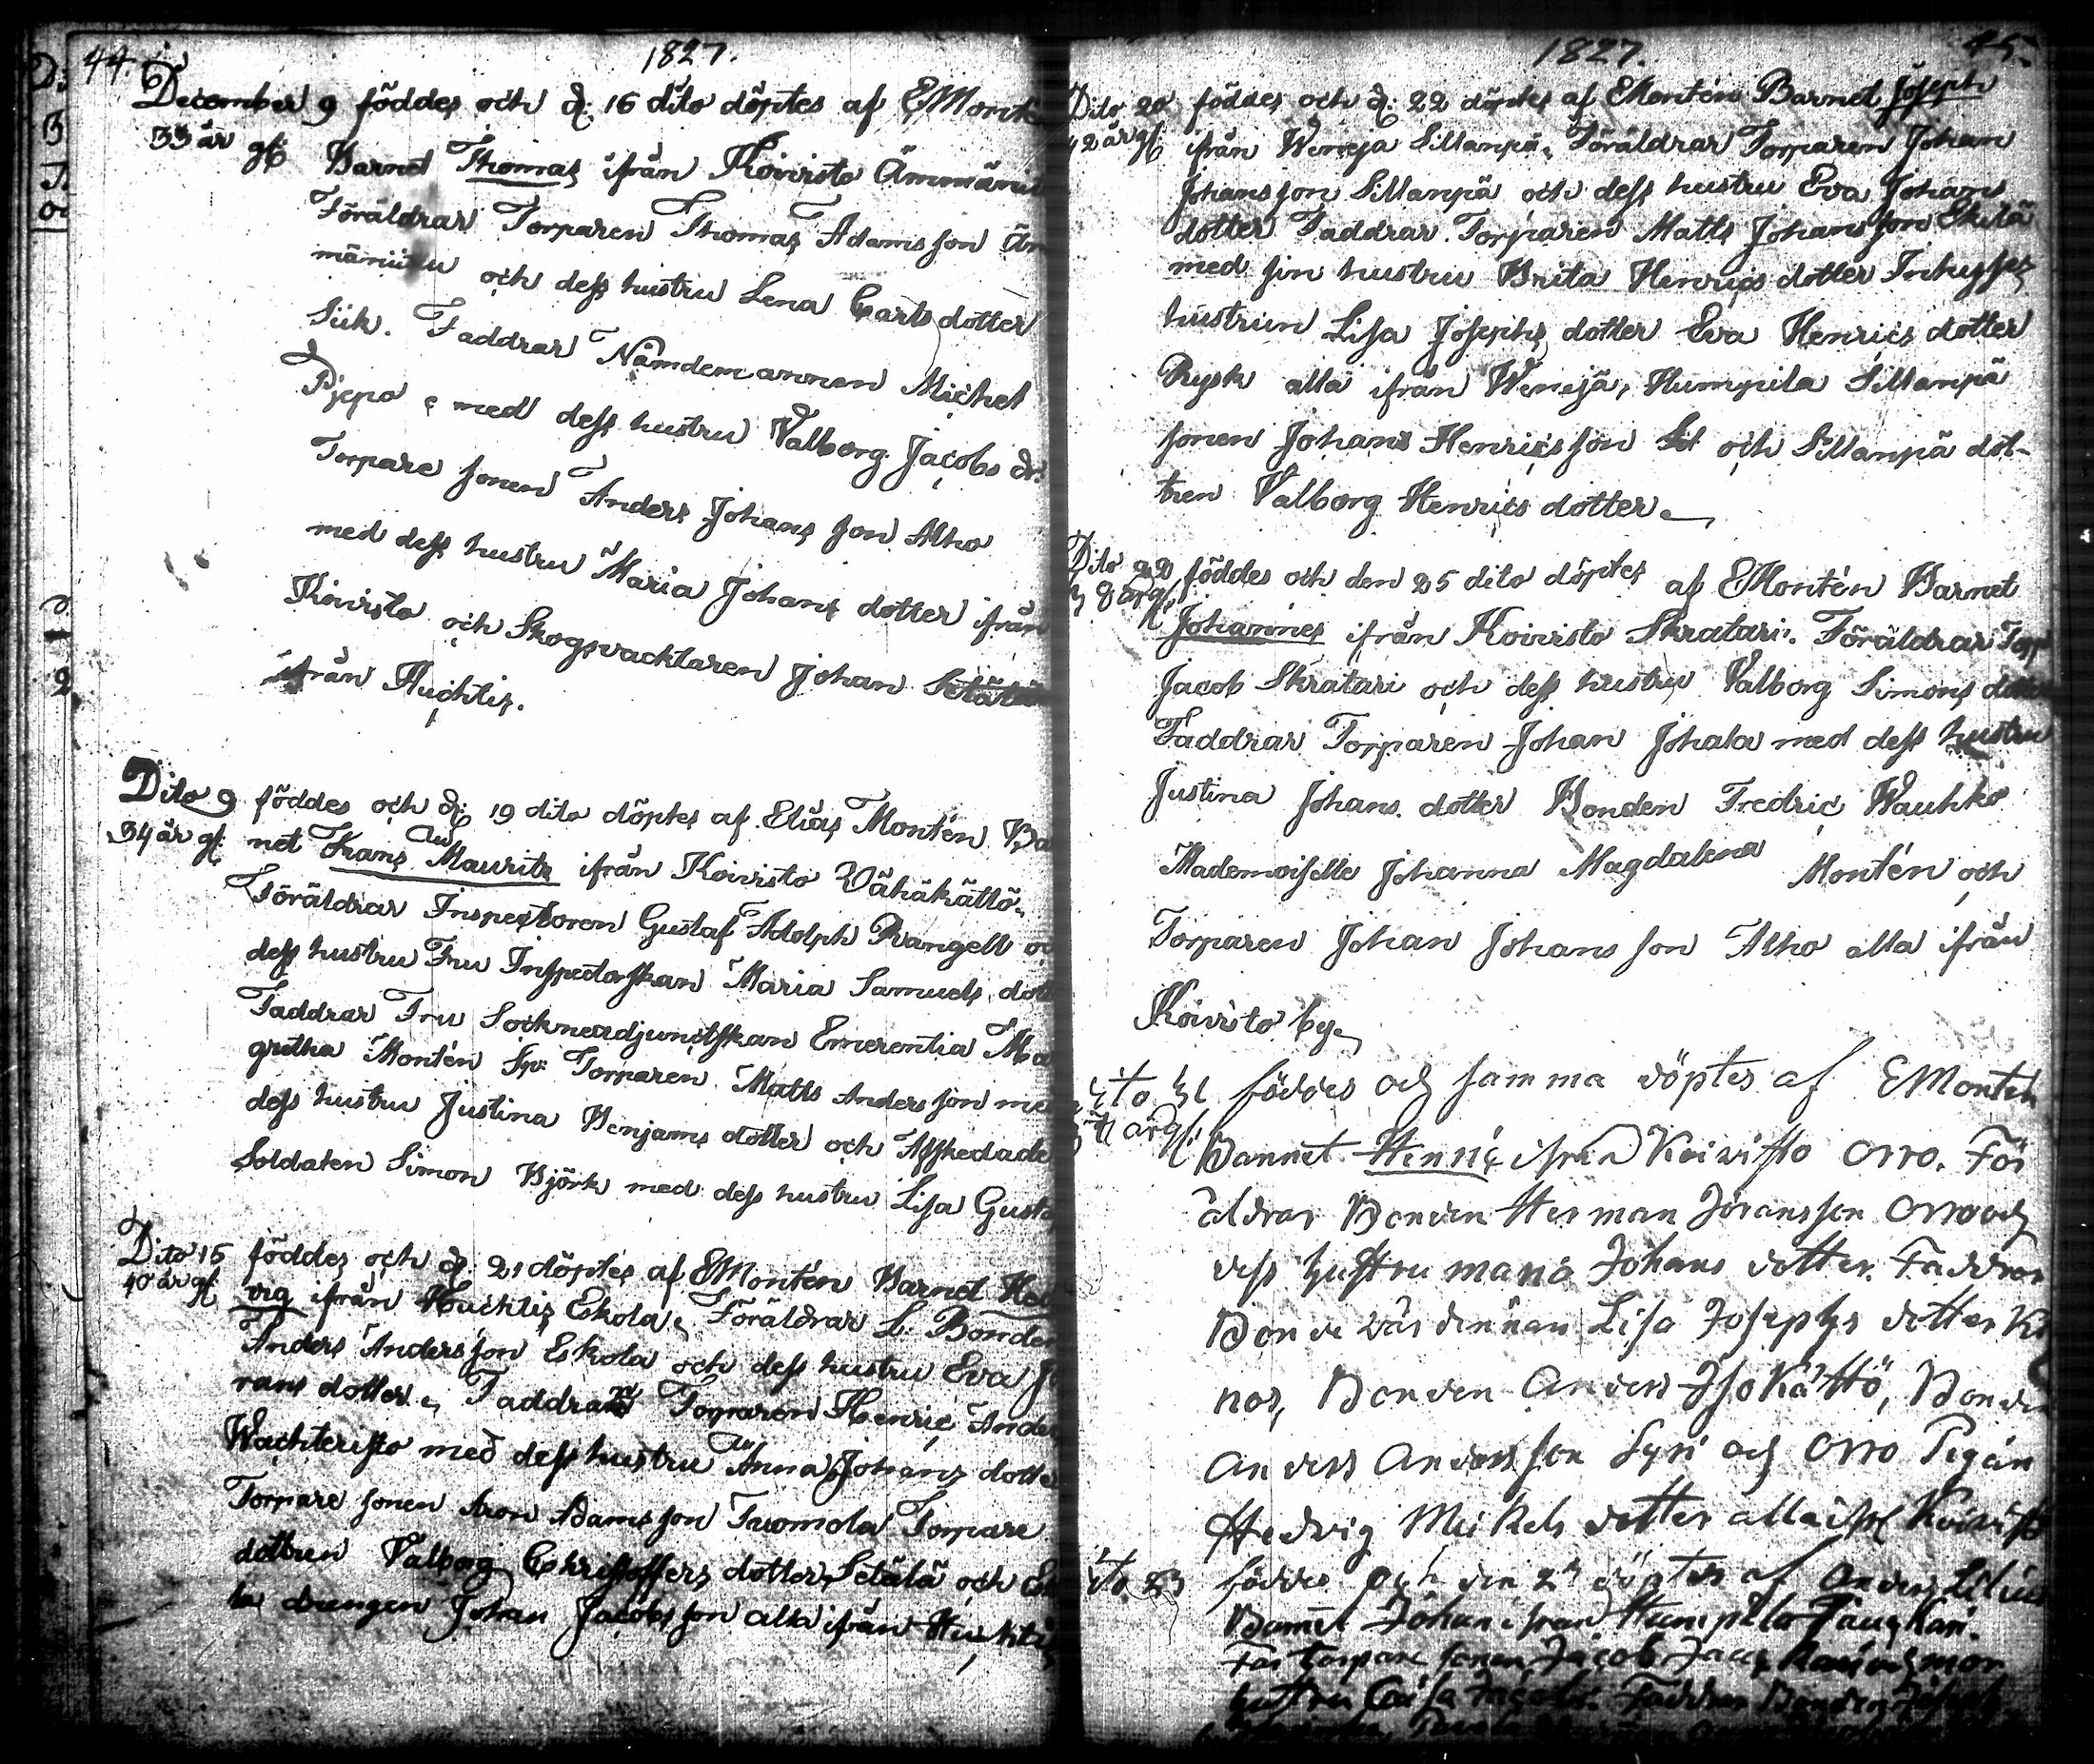 44.
1827.
December 9 föddes och d: 16 dito döptes af EMont
33 år gl: Barnet Thomas ifrån Koivisto
Föräldrar Torparen Thomas Adamsson
och dess hustru Lena Carlsdotter
Siik. Faddrar Nämdemannen Michel
Pjepo med dess hustru Valborg Jacobs dr:
Torpare sonen Anders Johans son Alho
med dess hustru Maria Johans dotter ifrån
Koivisto och Skogsvacktaren Johan
ifrån Huchtis.
Dito 9 föddes och d: 19 dito döptes af Elias Montén Ba
34 år gl: net Frans Mauritz ifrån Koivisto Vähäkättö
Föräldrar Inspectoren Gustaf Adolph Rangell oc
dess hustru Fru Inspectorskan Maria Samuels dott
Faddrar Fru Sockneadjunctskan Emerentia Ma
gretha Montén Torparen Matts Anders son me
dess hustru Justina Benjams dotter och Afskedade
Soldaten Simon Björk med dess hustru Lisa Gusta
Dito 15 föddes och d: 21 döptes af EMontén Barnet Hed
40 år gl: vig ifrån Huchtis Eskola, Föräldrar L: Bonden
Anders Anders son Eskola och dess hustru Eva Jö
rans dotter, Faddrar Torparen Henric Ander
Wachteristo med dess hustru Anna Johans dotte
Torpare sonen Aron Adams son Tuomola Torpare
dottren Valborg Christoffers dotter Setälä och Es
la drengen Johan Jacobs son alla ifrån Huchtis
1827.
45.
Dito 20 föddes och d: 22 döptes af EMontén Barnet Joseph
42 år gl: ifrån Weneja Sillanpä, Föräldrar Torparen Johan
Johans son Sillanpä och dess hustru Eva Johans
dotter Faddrar. Torparen Matts Johans son Eskilä
med sin hustru Brita Henrics dotter Inhyses
hustrun Lisa Josephs dotter Eva Henrics dotter
Rysk alla ifrån Wenejä, Humpila Sillanpä
sonen Johans Henrics son och Sillanpä dot-
tren Valborg Henrics dotter
Dito 22 föddes och den 25 dito döptes af EMontén Barnet
Johannes ifrån Koivisto Skratari. Föräldrar Torp
Jacob Skratari och dess hustru Valborg Simons dotter
Faddrar Torparen Johan Johala med dess hustru
Justina Johans dotter Bonden Fredric Wauhko
Mademoiselle Johanna Magdalena Montén och
Torparen Johan Johans son Alho alla ifrån
Koivisto by
ito 21 föddes och samma döptes af EMontén
Barnet Henric ifrån Koivisto Orro. För
äldrar Bonden Herman Jöransson Orro och
dess hustru Maria Johans dotter. Faddrar
Bonde värdinnan Lisa Josephs dotter
nos, Bonden Anders Isokättö, Bonden
Anders Anders son Syri och Orro Pigan
Hedvig Mickels dotter alla ifr Koivisto
ito 23 föddes och den döptes af Anders
Barnet Johan ifrån Humpila
Far Torpare sonen Jacob
hustru Caisa Jacobs. Faddrar Bonden